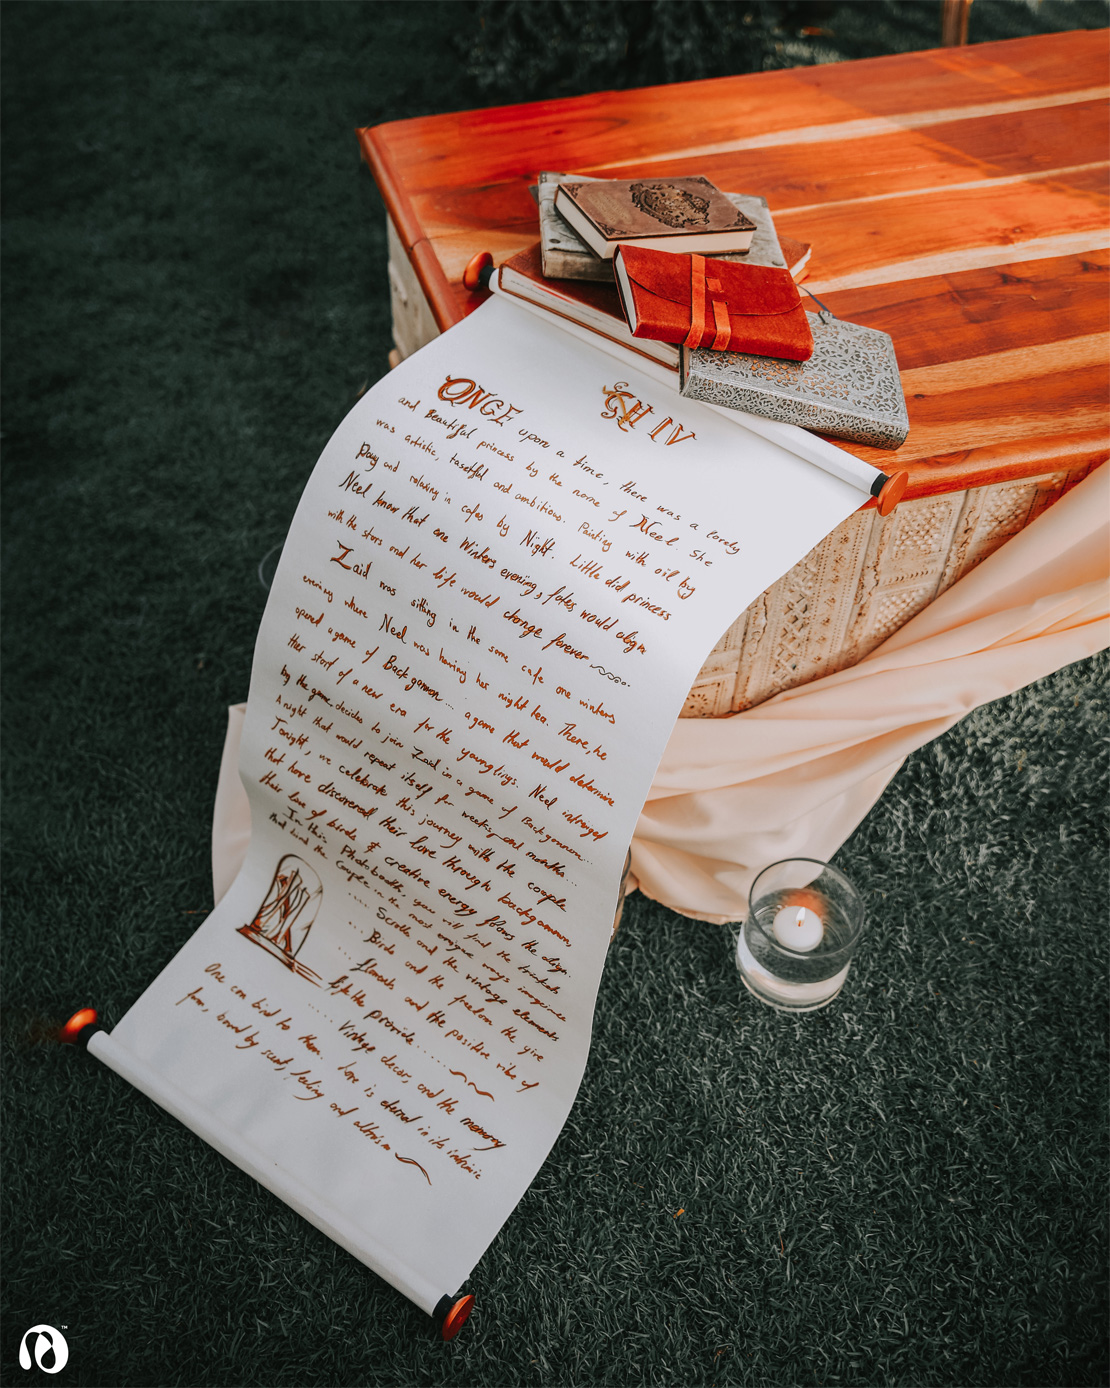 CH IV
ONCE upon a time, there was a lovely
and Beautiful princess by the name of Neel. She
was artistic, tasetful and ambitious. Painting with oil by
Day and relaxing in cafes by Night. Little did princess
Neel know that one Winters evening, fates would align
with the stars and her life would change forever
Zaid was sitting in the same cafe one winters
evening where Neel was having her night tea. There, he
opend a game of Backgammon... a game that would determine
ther start of a new era for the younglings. Neel intruiged
by the game decides to join Zaid in a game of Backgammon...
A night that would repeat itself for weeks, and months...
Tonight, we celebrate this journey with the couple
that have discovered their love through backgammon,
their love of birds & creative energy flows the
In this Photobooth you will find the
that bind the couple in the most unique ways
.... Scrolls and the vintage elements
... Birds and the freedom the give
... and the positive vibe of
the provide....
..... Vintage decor, and the memory
One can bind to them. Love is eternal in its intrinsic
form, bound by scent, feeling and altruism
TM